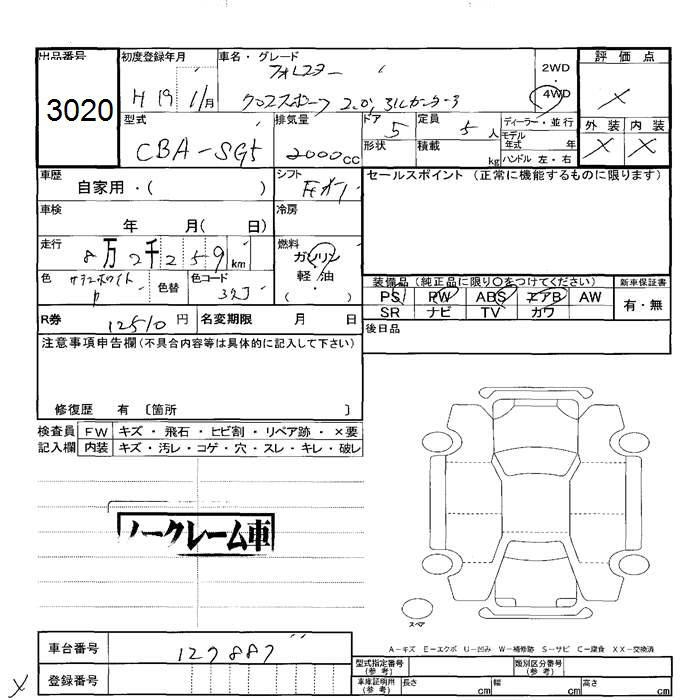 出品番号 初度登録年月 車名・グレード 評価点
3020 H 19 11月 フォレスター 2WD ・ 4WD ×
クロススポーツ 2.0i
外装 内装
× ×
型式 排気量 ドア 定員 ディーラー・並行
CBA-SG5 2000cc 5 5人 モデル年式 年
形状 積載 kg ハンドル 左・右
車歴 シフト セールスポイント (正常に機能するものに限ります)
自家用・( )
車検 冷房
年 月( 日)
走行 燃料
8万2千259km ガソリン
軽・油
( )
色 色替 色コード 装備品 (純正品に限り○をつけてください) 新車保証書
PS PW ABS エアB AW 有・無
SR ナビ TV カワ
R券 12510円 名変期限 月 日 後日品
注意事項申告欄(不具合内容等は具体的に記入して下さい)
修復歴 有 〔箇所 〕
検査員 FW キズ・飛石・ヒビ割・リペア跡・×要
記入欄 内装 キズ・汚レ・コゲ・穴・スレ・キレ・破レ
ノークレーム車
スペア
A-キズ E-エクボ U-凹み W-補修跡 S-サビ C-腐食 XX-交換済
車台番号 127887
型式指定番号(参考) 類別区分番号(参考)
× 登録番号
車庫証明用(参考) 長さ cm 幅 cm 高さ cm